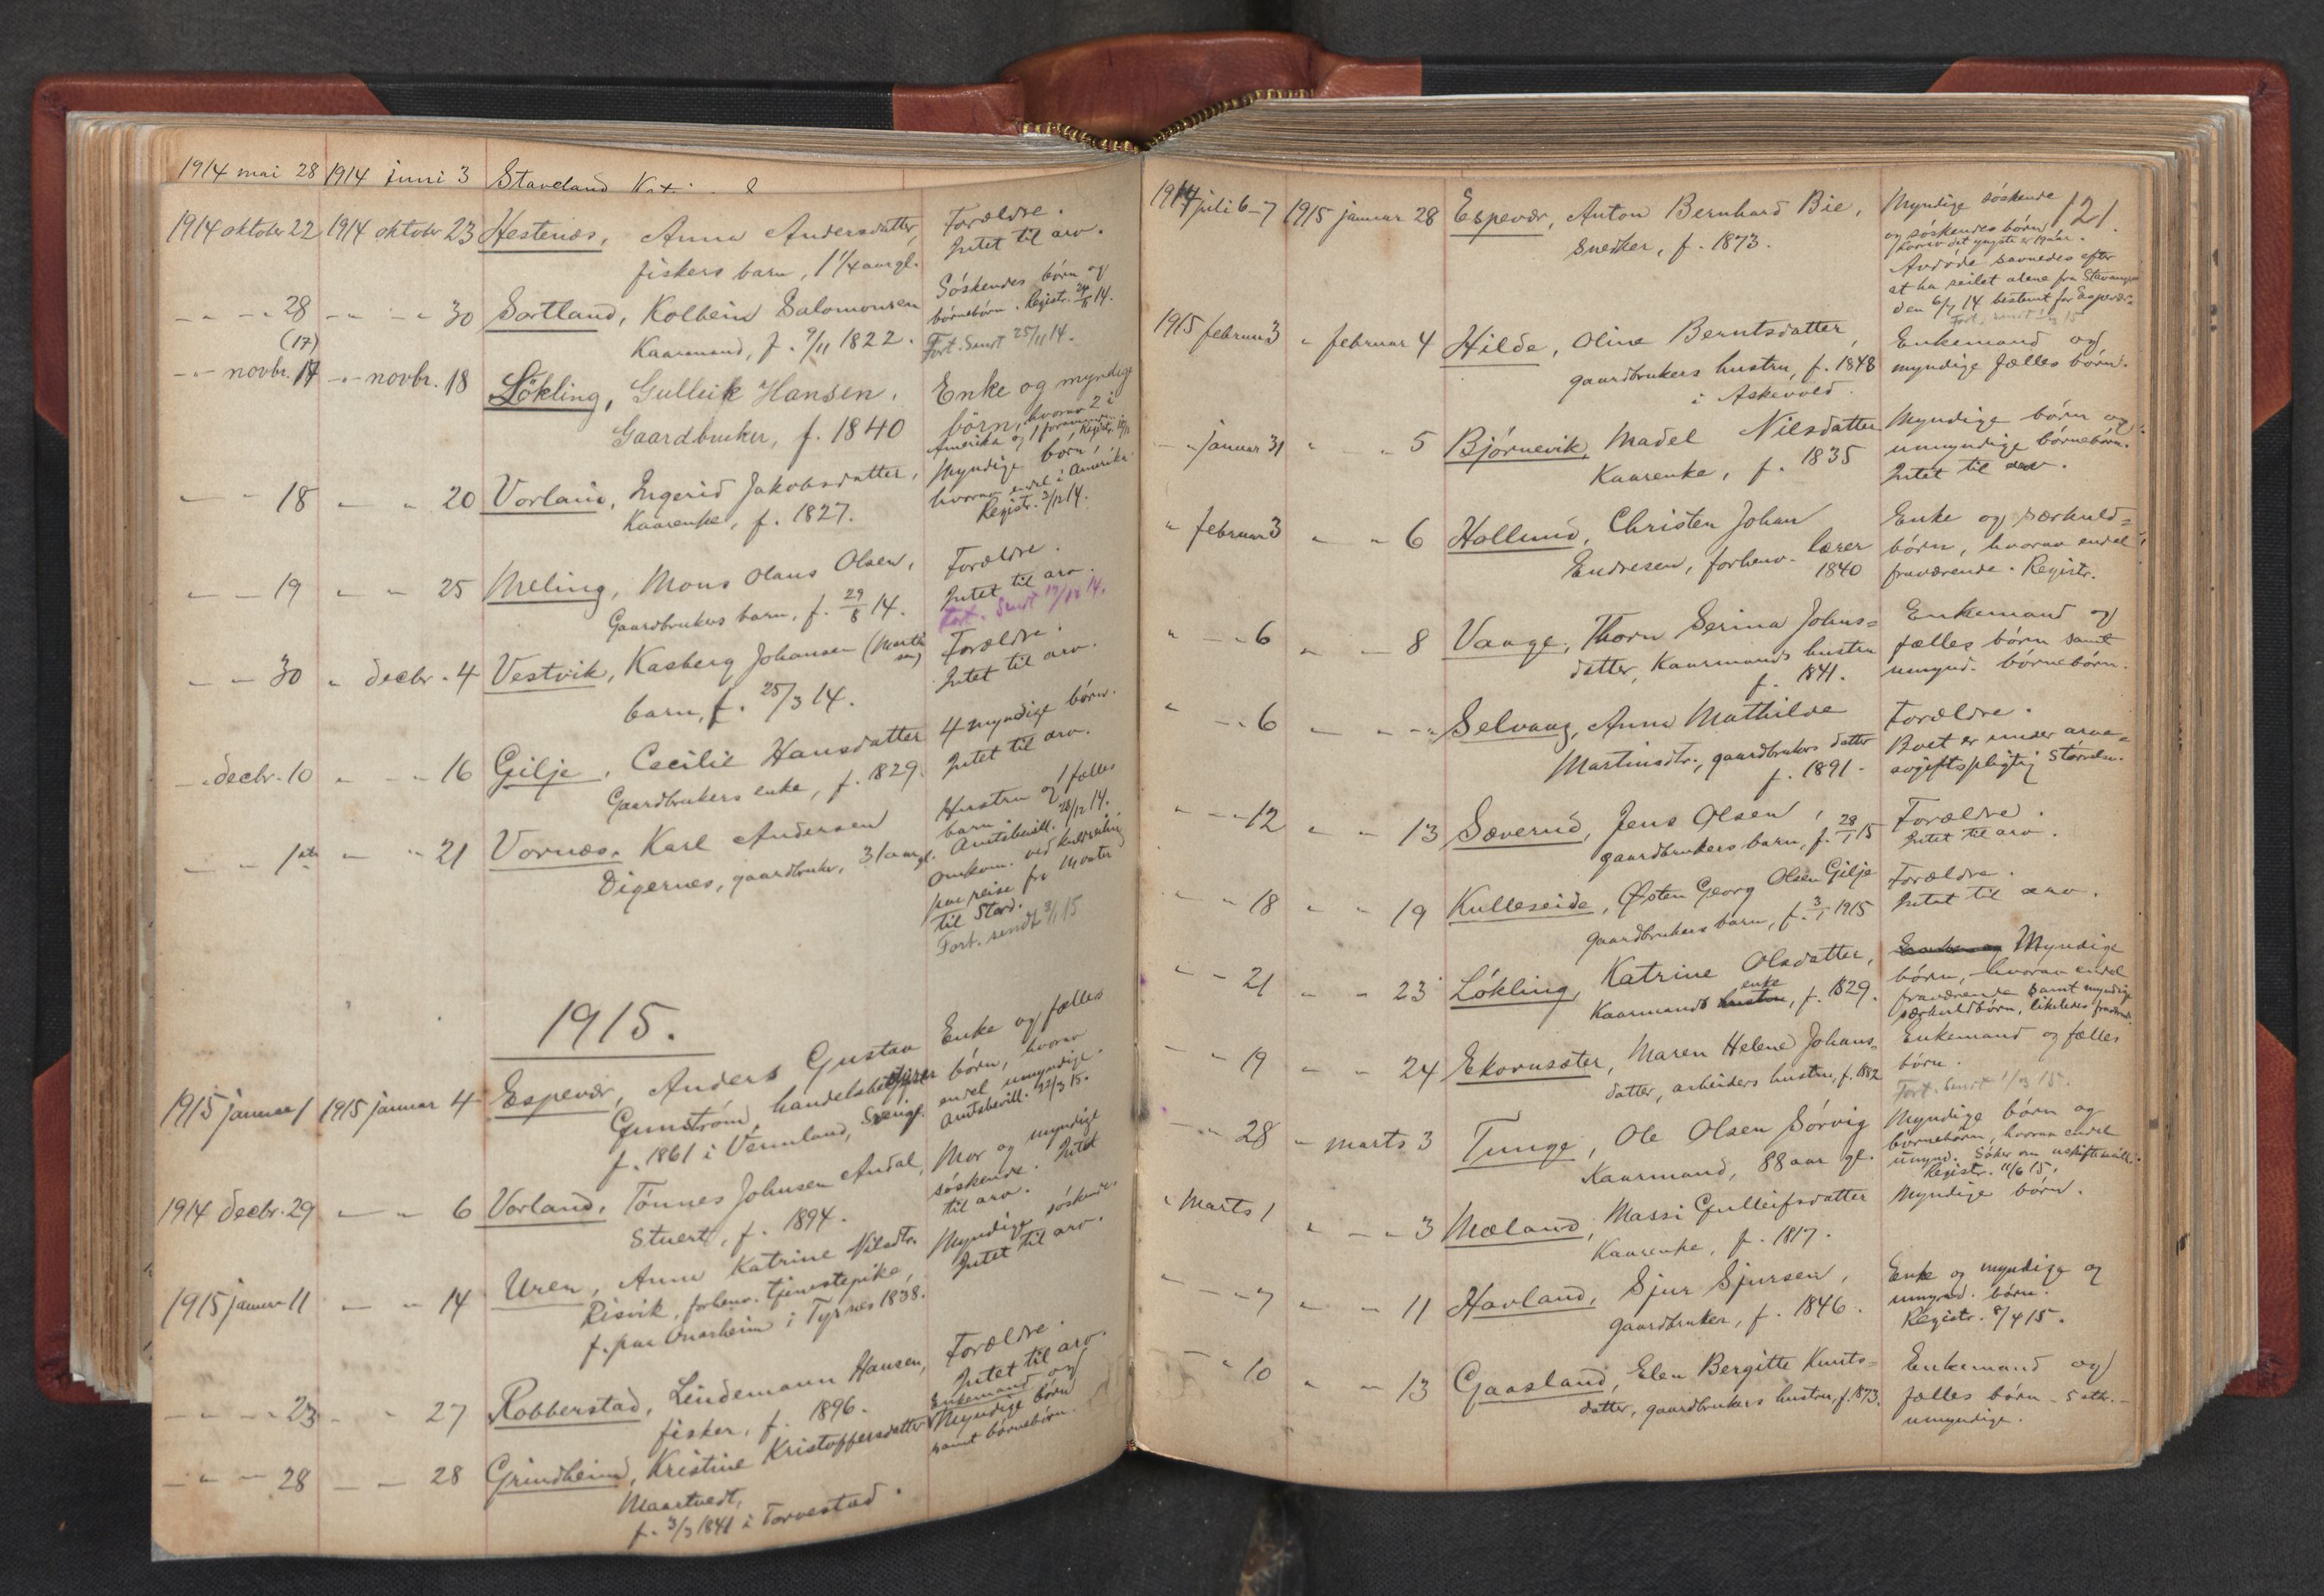 1914 mai 28 1914 juni 3 Staveland
1914 oktober 22 1914 oktober 23 Hestenæs, Anna Andersdatter, Forældre.
fiskers barn, 1 1/4 aar gl. Intet til arv.
- " - " 28 - " - " 30 Sortland, Kolbein Salomonsen Søskendes børn og
Kaarmand, f. 9/11 1822. børnebørn. Registr. 24/11 14.
Fort. sendt 25/11 14.
(17)
- " - novbr. 17 - " - novbr. 18 Løkling, Gulleik Hansen, Enke og myndige
Gaardbruker, f. 1840 børn, hvorav 2 i
Amerika og 1
- " - 18 - " 20 Vorland, Ingerid Jakobsdatter, Myndige børn,
Kaarenke, f. 1827. hvorav endel i Amerika.
Registr. 3/12 14.
- " - 19 " - " 25 Meling, Mons Olaus Olsen, Forældre.
Gaardbrukers barn, f. 29/8 14. Intet til arv.
Fort. sendt 14.
- " - 30 " decbr. 4 Vestvik, Kasberg Johansen Forældre.
barn, f. 25/3 14. Intet til arv.
- " decbr. 10 " - " 16 Gilje, Cecilie Hansdatter 4 myndige børn.
Gaardbrukers enke, f. 1829. Intet til arv.
- " - 1ste " - " 21 Vornæs, Karl Andersen Hustru og 1 fælles
Digernes, gaardbruker, 31 aar gl. barn.
Amtsbevill. 28/12 14.
Omkom. ved kuldseiling
paa reise fra Moster
til Stord.
Fort. sendt 3/1 15
1915.
1915 januar 1 1915 januar 4 Espevær, Anders Gustav Enke og fælles
Gunström, handelsbetjent børn, hvorav
f. 1861 i Vermland, Sverige. endel umyndige.
Amtsbevill. 22/3 15.
1914 decbr. 29 " - " 6 Vorland, Tønnes Johnsen Andal, Mor og myndige
Stuert, f. 1894. søskende. Intet
til arv.
1915 januar 11 " - " 14 Uren, Anna Katrine Nilsdtr. Myndige søskende.
Risvik, forhenv. tjenstepike, Intet til arv.
f. paa Onarheim i Tysnes 1838.
- " - 23 - " 27 Robberstad, Lindemann Hansen, Forældre.
fisker, f. 1896. Intet til arv.
- " - 28 - " 28 Grindheim, Kristine Kristoffersdatter Enkemand og
Maartvedt, Myndige børn
f. 3/3 1841 i Torvestad. samt børnebørn.
121.
1914 juli 6-7 1915 januar 28 Espevær, Anton Bernhard Bie, Myndige søskende
snedker, f. 1873. og søskendes børn
hvorav det yngste er 19 aar.
Avdøde savnedes efter
at ha seilet alene fra Stavanger
den 6/7 14 bestemt for Espevær.
1915 februar 3 " februar 4 Hilde, Oline Berntsdatter, Enkemand og
gaardbrukers hustru, f. 1848 myndige fælles børn.
i Askevold.
- " januar 31 " - " 5 Bjørnevik, Madel Nilsdatter Myndige børn og
Kaarenke, f. 1835 umyndige børnebørn.
Intet til arv.
" februar 3 " - " 6 Hollund, Christen Johan Enke og særkuld=
Endresen, forhenv. lærer børn, hvorav endel
1840 fraværende. Registr.
" - " 6 " - 8 Vaage, Thorn Serina Johns= Enkemand og
datter, Kaarmands hustru fælles børn samt
f. 1841. umynd. børnebørn.
" - " 6 " - " - " Selvaag, Anna Mathilde Forældre.
Martinsdtr., gaardbrukers datter Boet er under arve=
f. 1891. avgiftspligtig størrelse.
" - " 12 " - " 13 Sæverud, Jens Olsen, Forældre.
gaardbrukers barn, f. 28/1 15 Intet til arv.
" - " 18 " - " 19 Kulleseide, Østen Georg Olsen Gilje Forældre.
gaardbrukers barn, f. 3/1 1915 Intet til arv.
" - " 21 " - " 23 Løkling, Katrine Olsdatter, Enke og Myndige
Kaarmands hustru enke, f. 1829. børn, hvorav endel
fraværende samt myndige
særkuldbørn, likeledes
" - " 19 " - " 24 Ekornsæter, Maren Helene Johans= Enkemand og fælles
datter, arbeiders hustru, f. 1882 børn.
Fort. sendt 1/3 15.
" - " 28 " marts 3 Tunge, Ole Olsen Sørvig Myndige børn og
Kaarmand, 88 aar gl. børnebørn, hvorav endel
umynd. Søker om uskiftebevill.
Registr. 11/6 15.
" Marts 1 " - " 3 Mæland, Massi Gulleifsdatter Myndige børn.
Kaarenke, f. 1817.
" - " 7 " - " 11 Havland, Sjur Sjursen, Enke og myndige og
gaardbruker, f. 1846. umynd. børn.
Registr. 8/4 15.
" - " 10 " - " 13 Gaasland, Elen Bergitte Knuts= Enkemand og
datter, gaardbrukers hustru, f. 1873. fælles børn - 5 stk. -
umyndige.